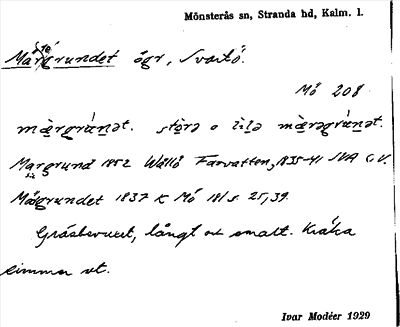 Mönsterås sn, Stranda hd, Kalm. l.
Margrundet ögr, Svartö.
Mö 208
màrgrúnət. stōrə o lilə màrəgrúnət.
Margrund 1852 Wållö Farvatten, 1835-41 SVA C.V.
Mårgrundet 1837 K Mö 18/s. 25,39.
Gräsbevuxet, långt och smalt. Kråka
simmer ut.
Ivar Modéer 1929